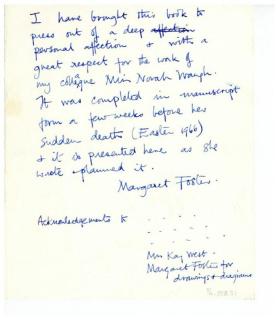 I have brought this book to
press out of a deep affection
personal affection & with a
great respect for the work of
my colleague Miss Norah Waugh.
It was completed in manuscript
form a few weeks before her
sudden death (Easter 1966)
& it is presented here as she
wrote & planned it.
Margaret Foster.
Acknowledgements to
Mrs Kay West.
Margaret Foster for
drawings & diagrams